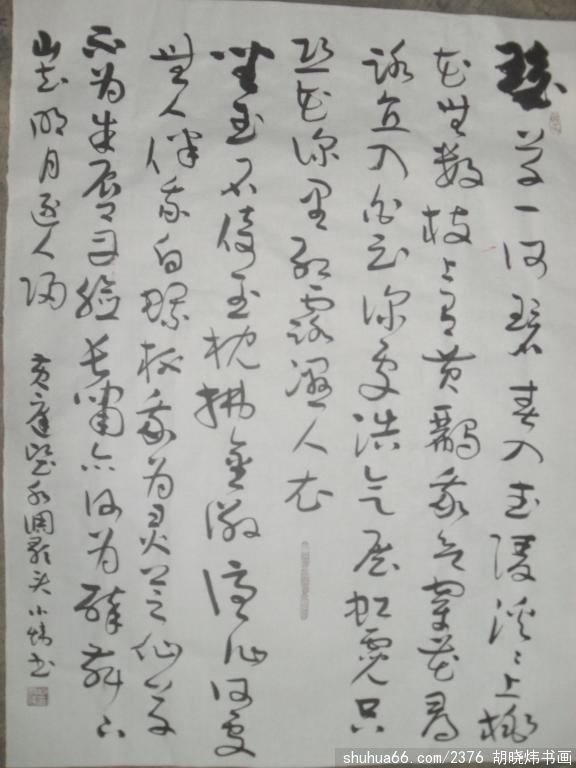 瑶草一何碧春入武陵溪〻上桃
花無數枝上有黄鸝我欲穿花尋
路直入白雲深處浩氣展虹霓只
恐花深里紅露濕人衣
坐玉石倚玉枕拂金徽謫仙何處
無人伴我白螺杯我為靈芝仙草
不為朱唇丹臉長嘯亦何為醉舞下
山去明月逐人歸 黄庭堅水調歌头 小炜书
shuhua66.com/2376 胡晓炜书画